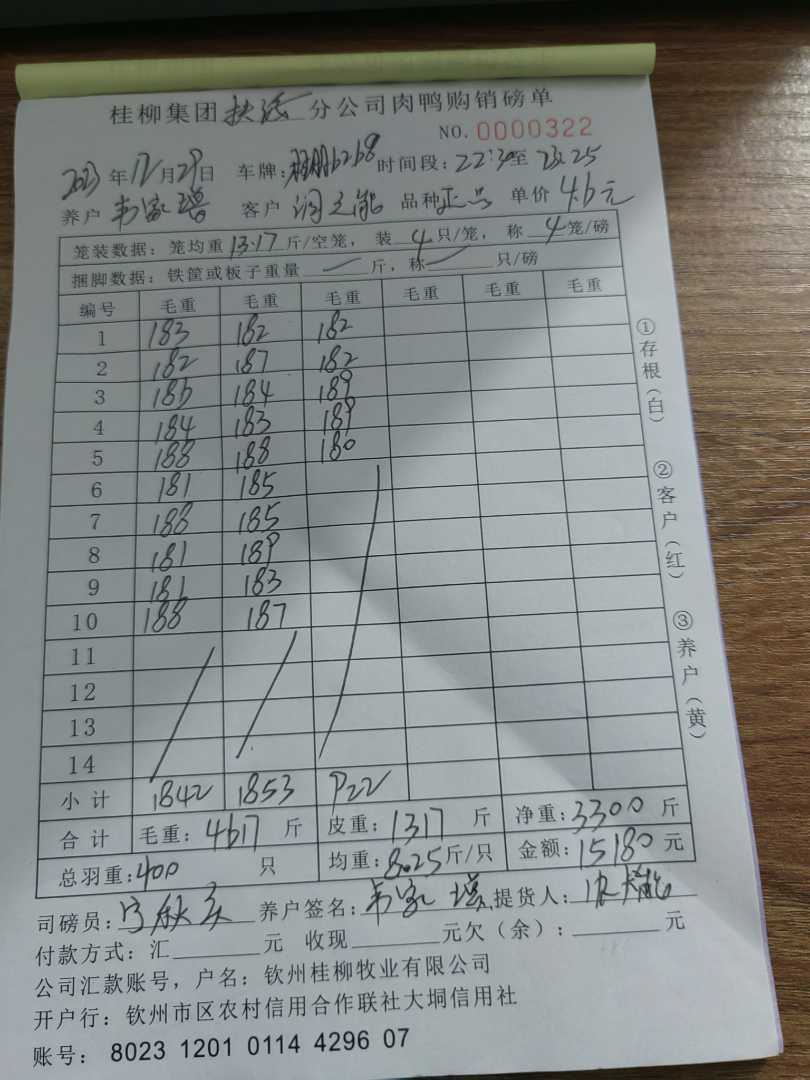 桂柳集团扶绥分公司肉鸭购销磅单
NO. 0000322
2023年12月29日 车牌: 6268 时间段: 22:30至23:25
养户 韦家瑙 客户 润之能 品种 正品 单价 4.6元
笼装数据: 笼均重13.17斤/空笼, 装4只/笼, 称4笼/磅
捆脚数据: 铁筐或板子重量 — 斤, 称 — 只/磅
编号 毛重 毛重 毛重 毛重 毛重 毛重
1 183 182 182
2 182 187 182
3 186 184 189
4 184 183 189
5 188 188 180
6 181 185
7 188 185
8 181 189
9 181 183
10 188 187
11
12
13
14
小计 1842 1853 922
合计 毛重: 4617斤 皮重: 1317斤 净重: 3300斤
总羽重: 400只 均重: 8.25斤/只 金额: 15180元
司磅员: 宁秋 养户签名: 韦家 提货人:
付款方式: 汇 元 收现 元欠(余): 元
公司汇款账号, 户名: 钦州桂柳牧业有限公司
开户行: 钦州市区农村信用合作联社大垌信用社
账号: 8023 1201 0114 4296 07
①存根(白)
②客户(红)
③养户(黄)